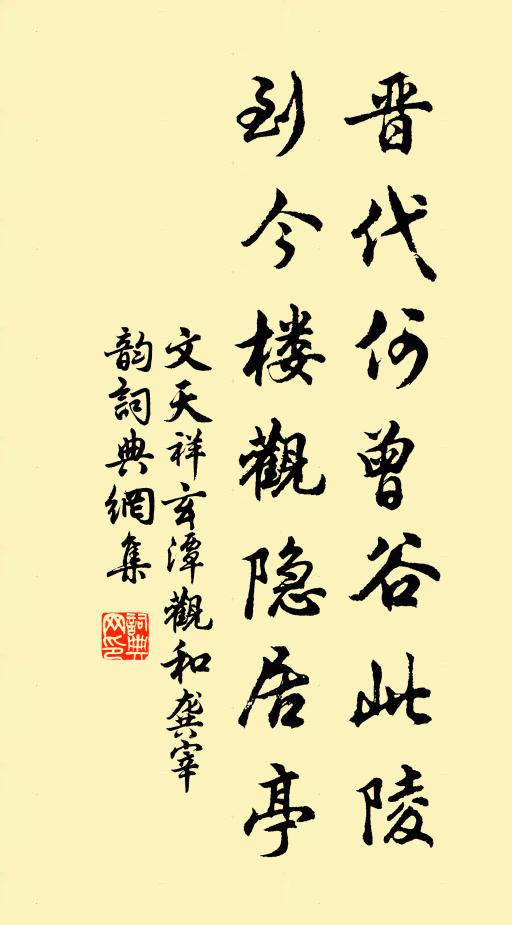 晋代何曾谷此陵
到今楼觀隐居亭
文天祥玄潭觀和龚宰
韵詞典網集
詞典网印